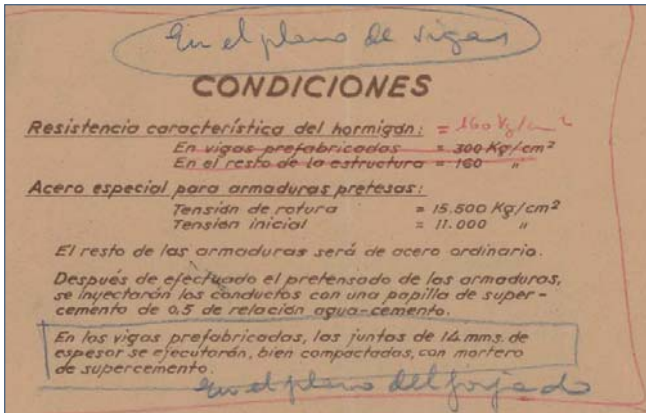 En el plano de vigas
CONDICIONES
Resistencia característica del hormigón: = 160 Kg/cm²
En vigas prefabricadas = 300 Kg/cm²
En el resto de la estructura = 160 "
Acero especial para armaduras pretesas:
Tensión de rotura = 15.500 Kg/cm²
Tensión inicial = 11.000 "
El resto de las armaduras será de acero ordinario.
Después de efectuado el pretensado de las armaduras,
se inyectarán los conductos con una papilla de super-
cemento de 0,5 de relación agua-cemento.
En las vigas prefabricadas, las juntas de 14 mms. de
espesor se ejecutarán, bien compactadas, con mortero
de supercemento.
en el plano del forjado